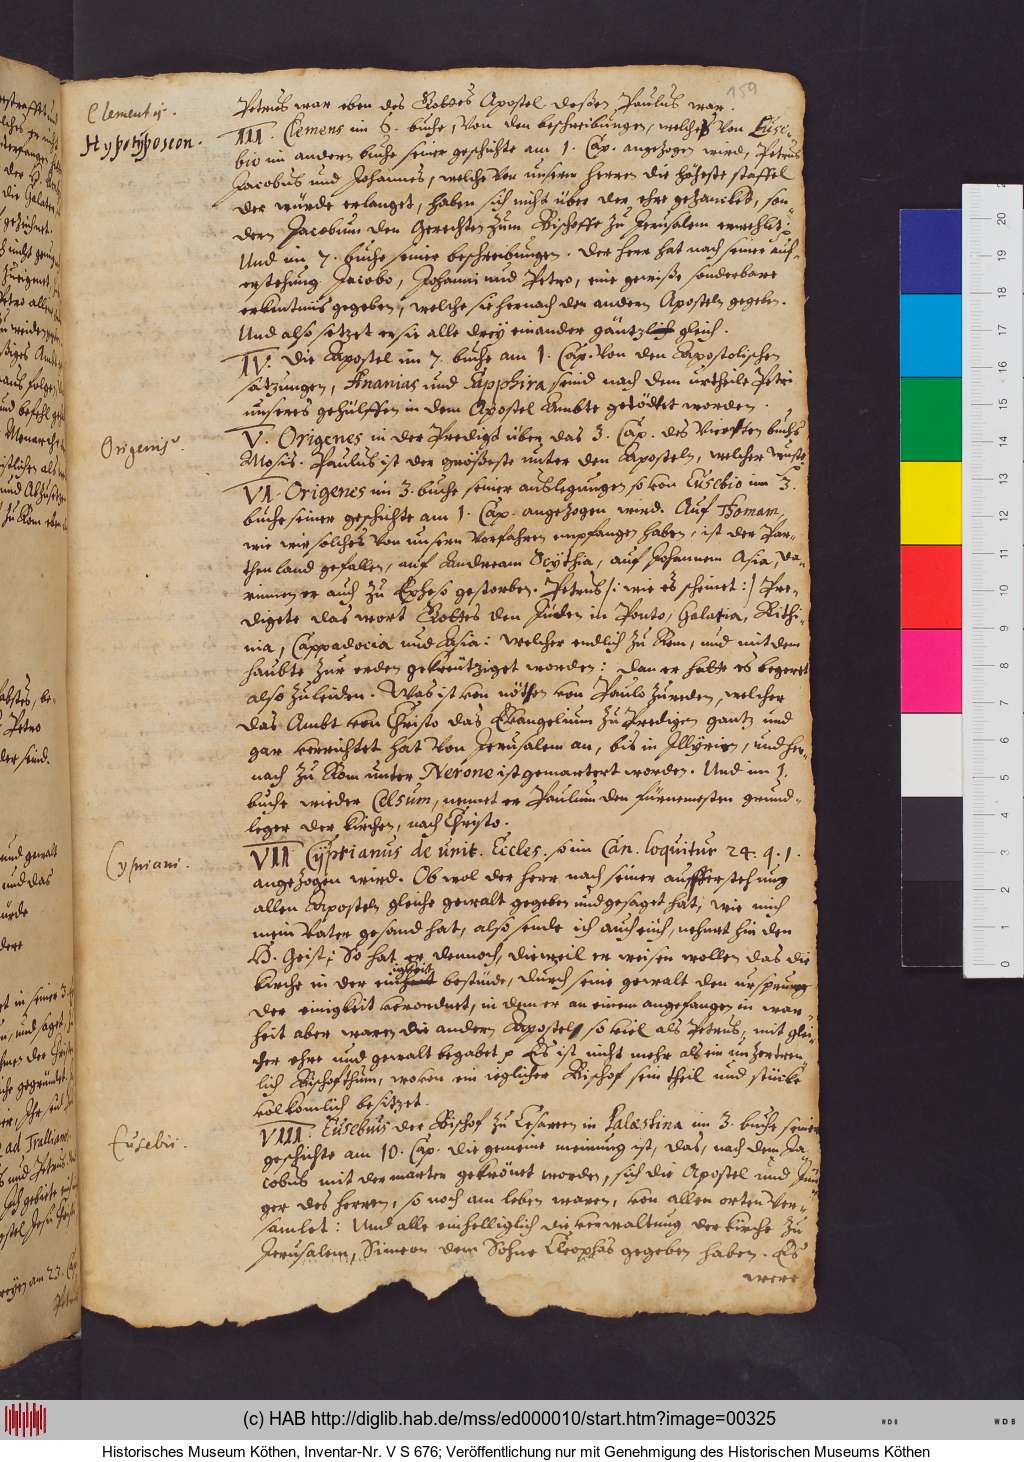 159
Clementis.
Hypotyposeon.
Petrus war eben des Gottes Apostel dessen Paulus war.
III. Clemens im 6. buche, von den beschreibungen, welches von Euse-
bio im andern buche seiner geschichte am 1. Cap. angezogen wird, Petrus
Jacobus und Johannes, welche von unserm Herren die höheste staffel
der würde erlanget, haben sich nicht über der ehre gezancket, son-
dern Jacobum den Gerechten zum Bischoffe zu Jerusalem erwehlet:
Und im 7. buche seiner beschreibungen. Der Herr hat nach seiner auf-
erstehung Jacobo, Johanni und Petro, eine gewisse sonderbare
erkentnüs gegeben, welche sie hernach den andern Aposteln gegeben.
Und also setzet er sie alle drey einander gäntzlich gleich.
IV. Die Apostel im 7. buche am 1. Cap. von den Apostolischen
satzungen, Ananias und Sapphira seind nach dem urtheile Petri
unseres gehülffen in dem Apostel Ambte getödtet worden.
Origenis
V. Origenes in der Predigt über das 3. Cap. des Vierten buchs
Mosis. Paulus ist der grösseste unter den Aposteln, welcher wuste
VI. Origenes im 3. buche seiner auslegungen so von Eusebio im 3.
buche seiner geschichte am 1. Cap. angezogen wird. Auf Thomam,
wie wir solches von unsern Vorfahren empfangen haben, ist der Par-
then land gefallen, auf Andream Scythia, auf Johannem Asia, da-
rinnen er auch zu Epheso gestorben. Petrus /: wie es scheinet :/ Pre-
digete das wort Gottes den Juden in Ponto, Galatia, Bithi-
nia, Cappadocia und Asia: welcher endlich zu Rom, und mit dem
haubte zur erden gekreutziget worden: dan er hatte es begeret
also zu leiden. Was ist von nöthen von Paulo zureden, welcher
das Ambt von Christo das Evangelium zu Predigen gantz und
gar verrichtet hat von Jerusalem an, bis in Illyrien, und her-
nach zu Rom unter Nerone ist gemartert worden. Und im 1.
buche wieder Celsum, nennet er Paulum den fürnemesten grund-
leger der kirchen, nach Christo.
Cypriani.
VII Cyprianus de unit. Eccles. so im Can. loquitur 24. q. 1.
angezogen wird. Ob wol der Herr nach seiner aufferstehung
allen Aposteln gleiche gewalt gegeben und gesaget hat, wie mich
mein Vater gesand hat, also sende ich auch euch, nehmt hin den
H. Geist; So hat er dennoch, dieweil er weisen wollen das die
kirche in der einigkeit bestünde, durch seine gewalt den ursprung
der einigkeit verordnet, in dem er an einem angefangen in war-
heit aber waren die andern Apostel so viel als Petrus, mit glei-
cher ehre und gewalt begabet p Es ist nicht mehr als ein unzertren-
lich Bischofthum, wovon ein ieglicher Bischof sein theil und stücke
volkömlich besitzet.
Eusebii.
VIII. Eusebius der Bischof zu Cesareen in Palæstina im 3. buche seiner
geschichte am 10. Cap. die gemeine meinung ist, das, nach dem Ja
cobus mit der marter gekrönet worden, sich die Apostel und Jün
ger des Herren, so noch am leben waren, von allen orten ver-
samlet: Und alle einhelliglich die verwaltung der kirche zu
Jerusalem, Simeon dem Sohne Cleophas gegeben haben. Es
were
(c) HAB http://diglib.hab.de/mss/ed000010/start.htm?image=00325
Historisches Museum Köthen, Inventar-Nr. V S 676; Veröffentlichung nur mit Genehmigung des Historischen Museums Köthen